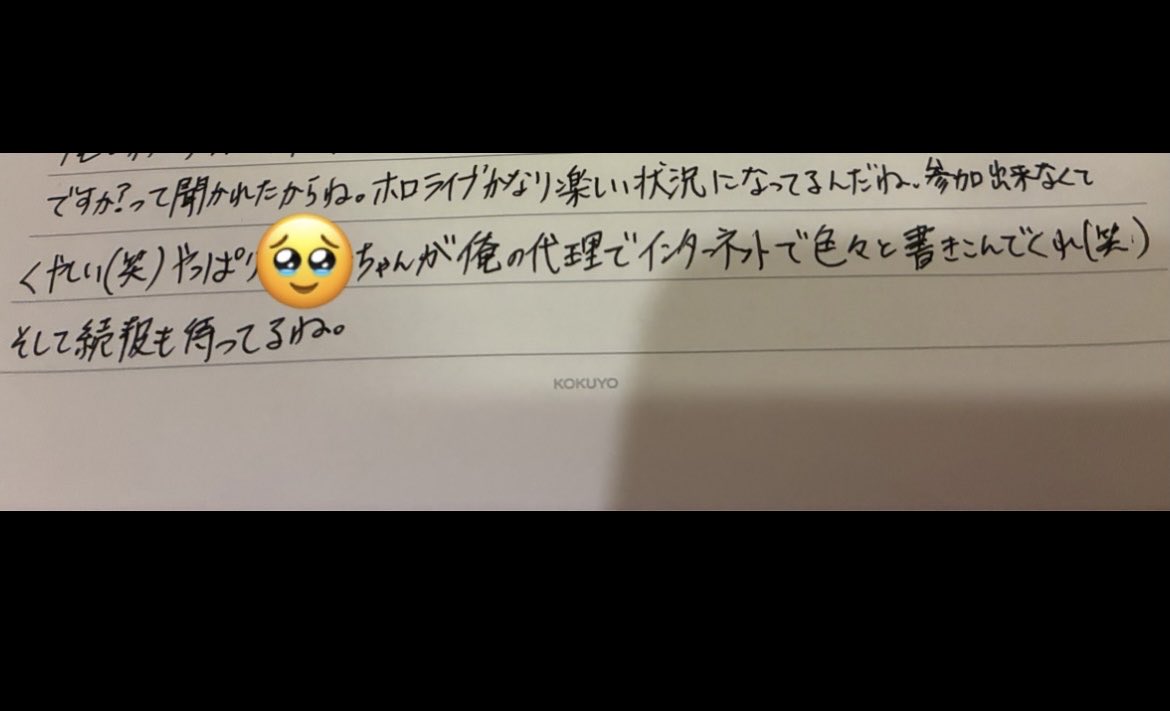 ですか?って聞かれたからね。ホロライブかなり楽しい状況になってるんだね、参加出来なくて
くやしい(笑)やっぱり🥹ちゃんが俺の代理でインターネットで色々と書きこんでくれ(笑)
そして続報も待ってるね。
KOKUYO